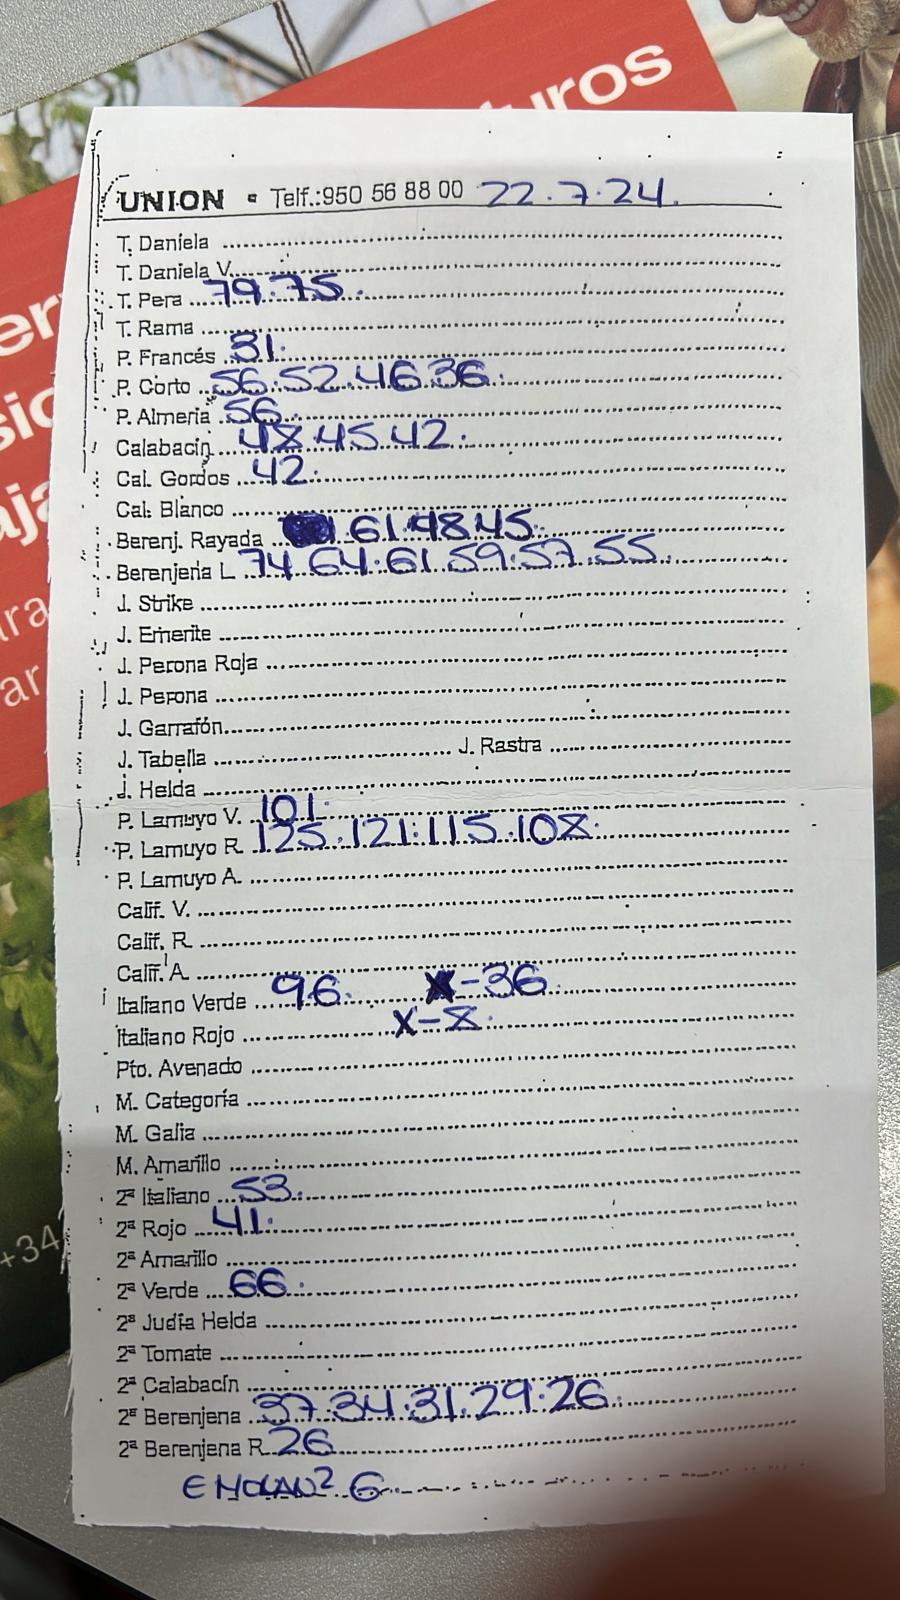 uros
UNION ▪ Telf.:950 56 88 00 22.7.24.
T. Daniela
T. Daniela V.
T. Pera 79.75.
T. Rama
P. Francés 31.
P. Corto 56.52.46.36.
P. Almería 56.
Calabacín 48.45.42.
Cal. Gordos 42.
Cal. Blanco
Berenj. Rayada 61.48.45.
Berenjena L 74 64.61.59.57.55.
J. Strike
J. Emerite
J. Perona Roja
J. Perona
J. Garrafón
J. Tabella J. Rastra
J. Helda
P. Lamuyo V. 101.
P. Lamuyo R. 125.121.115.108.
P. Lamuyo A.
Calif. V.
Calif. R
Calif. A
Italiano Verde 96. X-36.
Italiano Rojo X-8.
Pto. Avenado
M. Categoría
M. Galia
M. Amarillo
2ª Italiano 53.
2ª Rojo 41.
2ª Amarillo
2ª Verde 66.
2ª Judía Helda
2ª Tomate
2ª Calabacín
2ª Berenjena 37.34.31.29.26.
2ª Berenjena R 26
6
+34